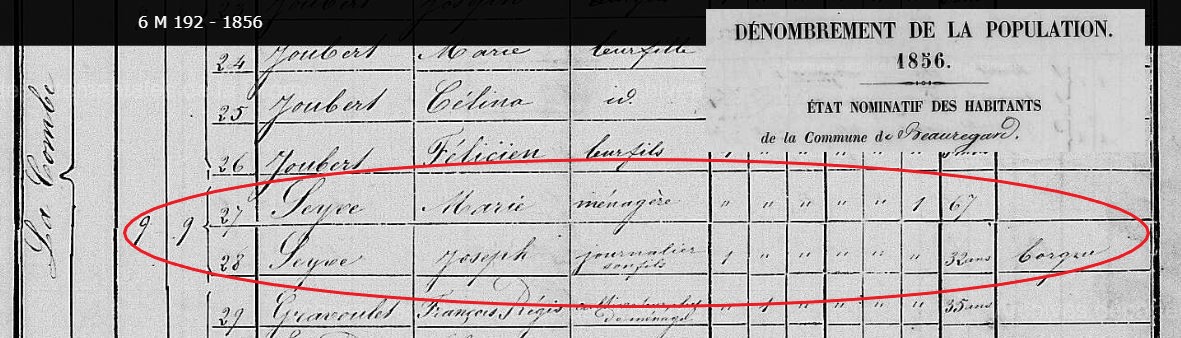 6 M 192 - 1856
DÉNOMBREMENT DE LA POPULATION.
1856.
ÉTAT NOMINATIF DES HABITANTS
de la Commune de Beauregard.
La Combe
24 Joubert Marie leur fille
25 Joubert Célina id.
26 Joubert Félicien leur fils
9 9 27 Seyve Marie ménagère " " " " " 1 67
28 Seyve Joseph journalier son fils 1 " " " " " 32 ans borgne
29 Gravoulet François Régis " 1 " " " " 35 ans
de ménage